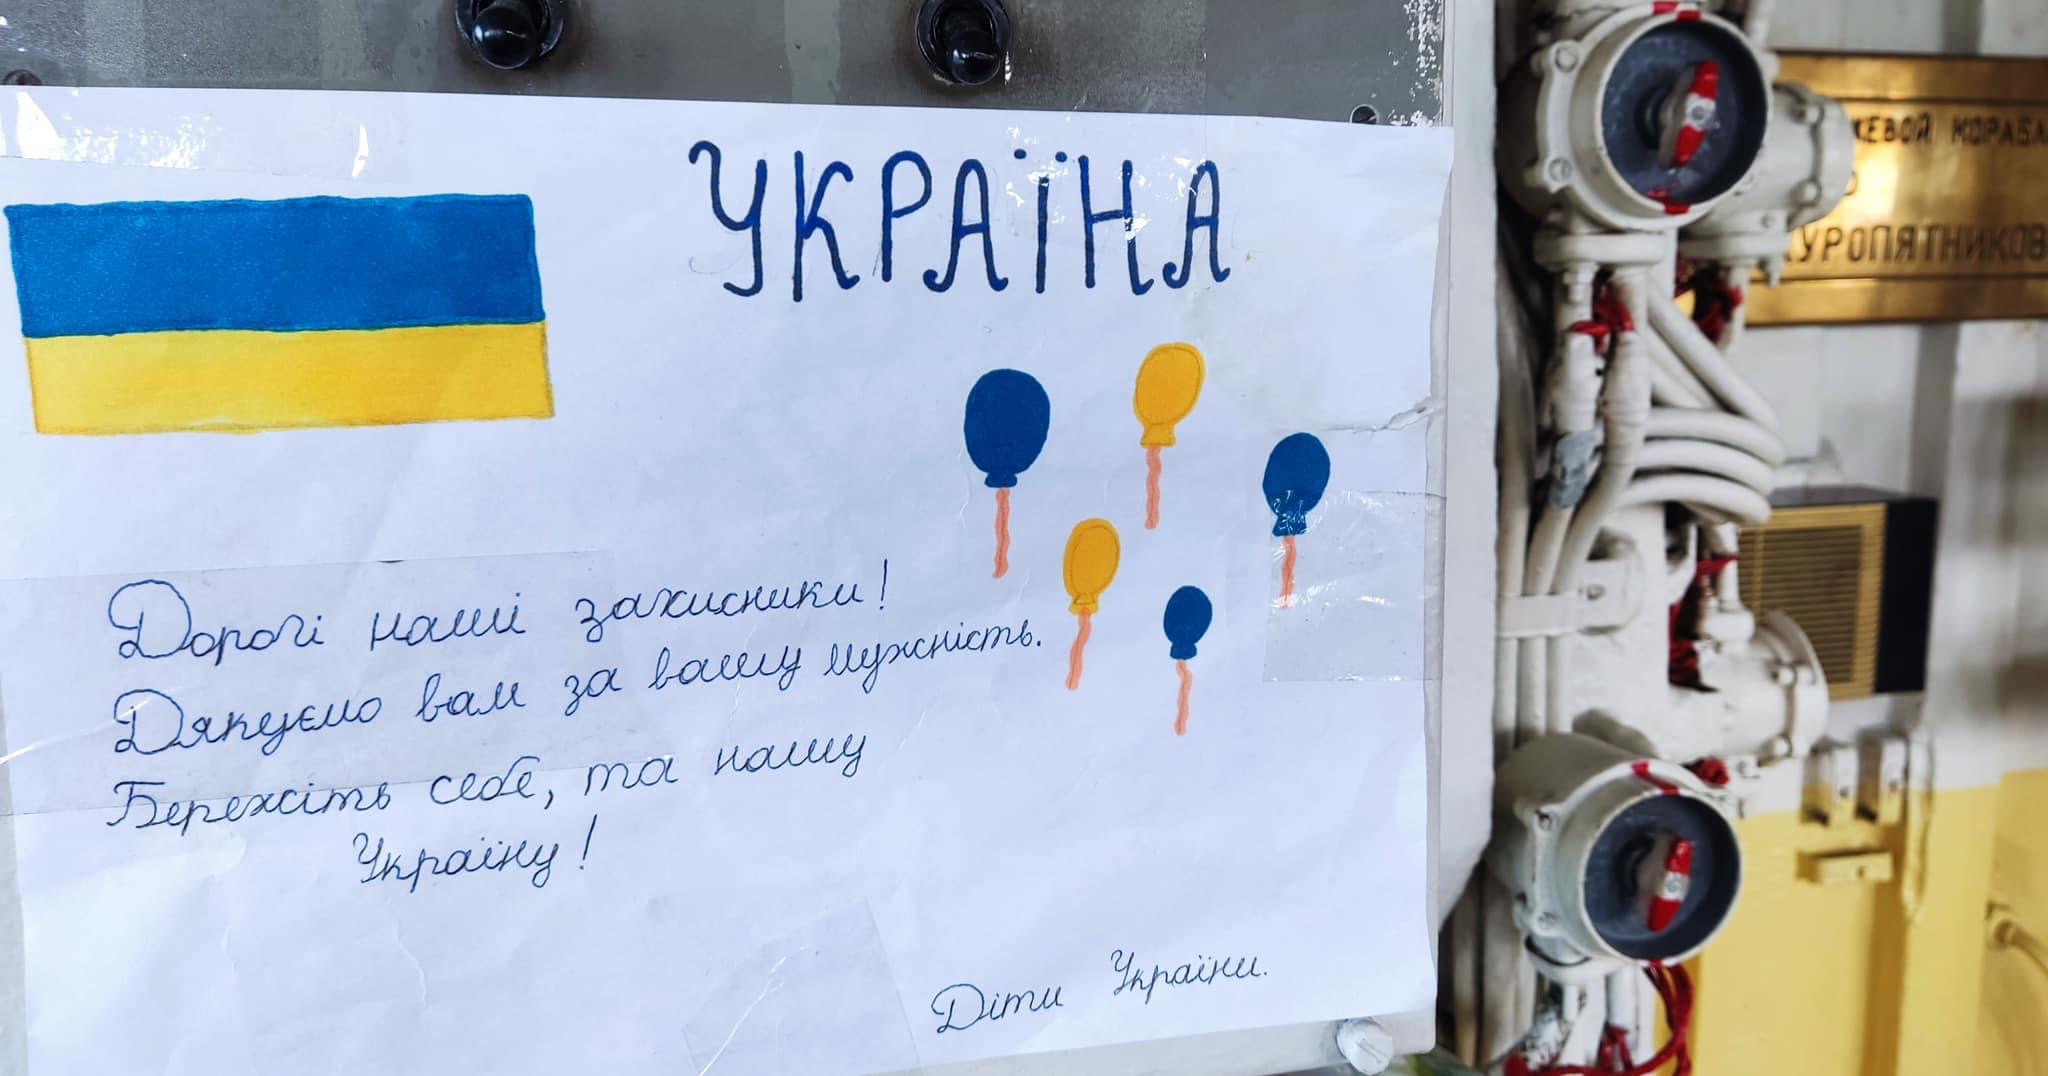 УКРАЇНА
Дорогі наші захисники!
Дякуємо вам за вашу мужність.
Бережіть себе, та нашу
Україну!
Діти України.
КОРАБЛ
КУРОПЯТНИКОВ